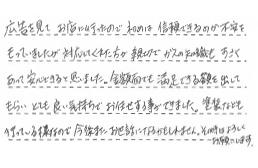 広告を見てお店に行ったので初めは信頼できるのか不安を
もっていましたが対応してくれた方が親切でガスの知識もすごく
あって安心できると思いました。金額面でも満足できる額を出して
もらいとても良い気持ちでお任せする事ができました。塗装なども
迷っている様なので今後またお世話になるかもしれません。その時はよろしく
お願いします。